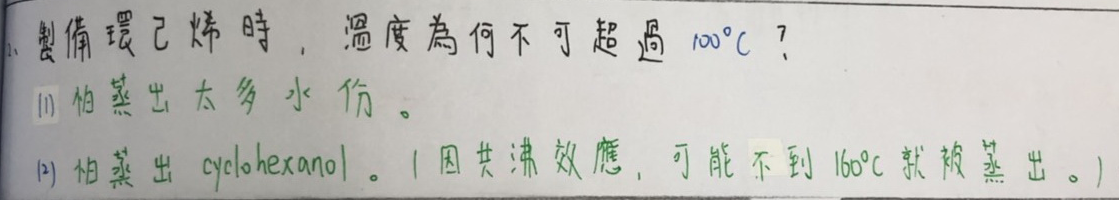 1. 製備環己烯時，溫度為何不可超過 100°C？
(1) 怕蒸出太多水份。
(2) 怕蒸出 cyclohexanol。(因共沸效應，可能不到 160°C 就被蒸出。)